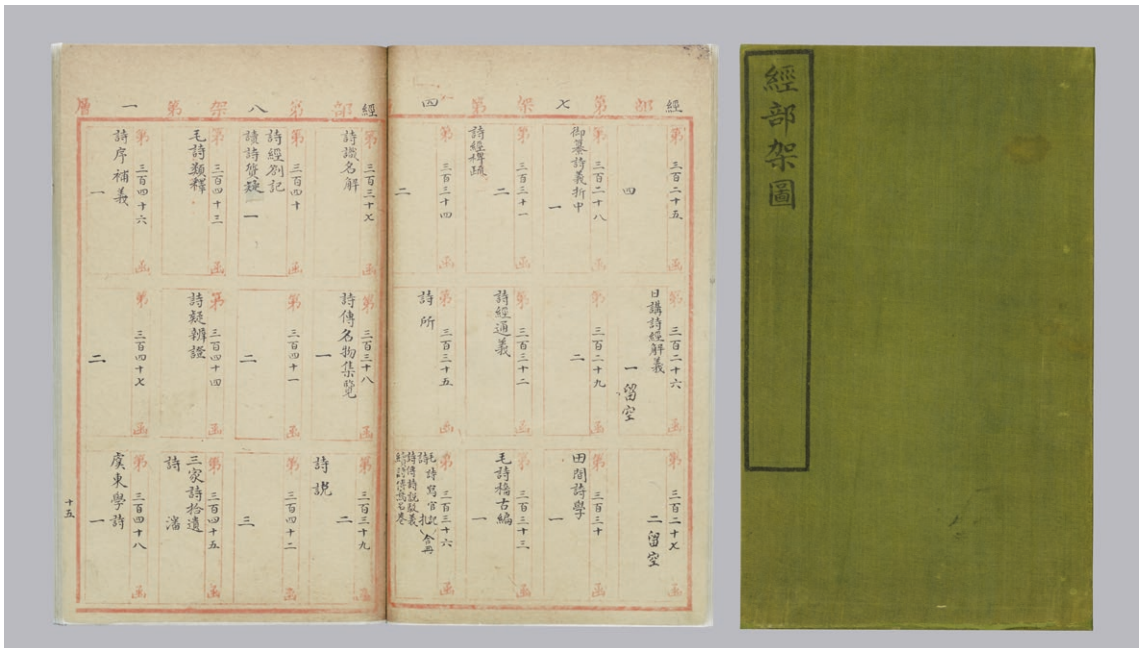 經部架圖
經部第七架第四層
第三百二十五函
四
第三百二十六函
日講詩經解義
一留空
第三百二十七函
二留空
第三百二十八函
御纂詩義折中
一
第三百二十九函
二
第三百三十函
田間詩學
一
第三百三十一函
二
詩經稗疏
第三百三十二函
詩經通義
第三百三十三函
毛詩稽古編
一
第三百三十四函
二
第三百三十五函
詩所
第三百三十六函
毛詩寫官記
詩札 合冊
詩傳詩說駁義
續詩傳鳥名卷
經部第八架第一層
第三百三十七函
詩識名解
第三百三十八函
詩傳名物集覽
一
第三百三十九函
二
詩說
第三百四十函
詩經別記
讀詩質疑 一
第三百四十一函
二
第三百四十二函
三
第三百四十三函
毛詩類釋
第三百四十四函
詩疑辨證
第三百四十五函
三家詩拾遺
詩瀋
第三百四十六函
詩序補義
一
第三百四十七函
二
第三百四十八函
虞東學詩
一
十五